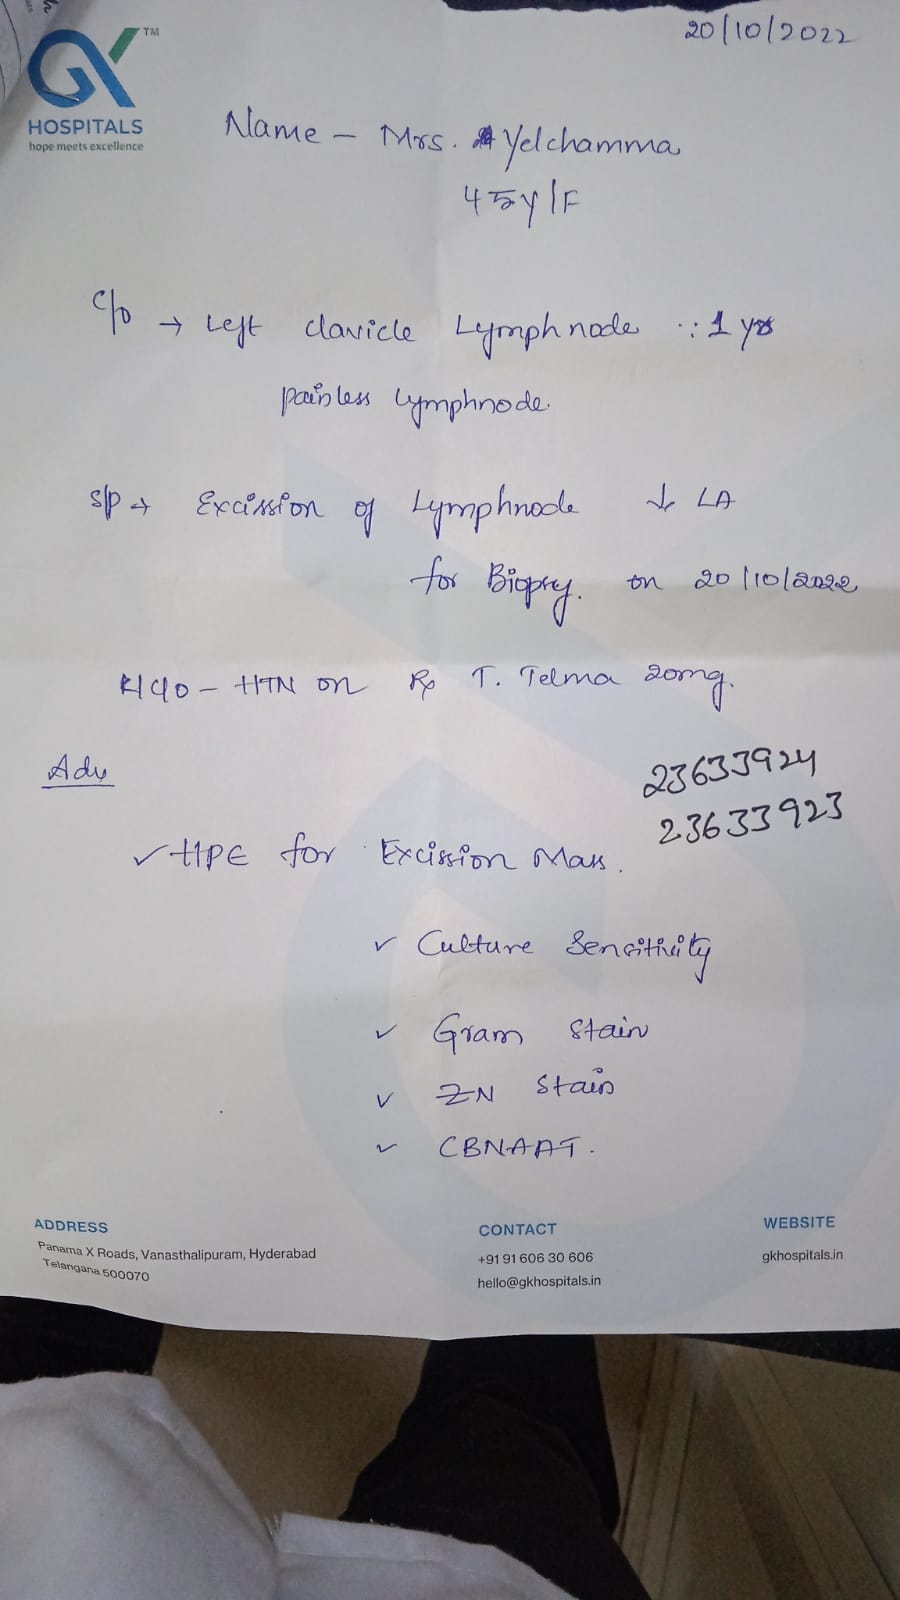 20/10/2022
GK TM
HOSPITALS
hope meets excellence
Name - Mrs. Yelchamma
45y/F
c/o → Left clavicle Lymphnode ∴ 1 yrs
painless lymphnode.
S/p → Excission of Lymphnode ↓ LA
for Biopsy. on 20/10/2022
K/c/o - HTN on Rx T. Telma 20mg.
Adv
23633924
23633923
✓ HPE for Excission Mass.
✓ Culture Sensitivity
✓ Gram Stain
✓ ZN Stain
✓ CBNAAT.
ADDRESS
Panama X Roads, Vanasthalipuram, Hyderabad
Telangana 500070
CONTACT
+91 91 606 30 606
hello@gkhospitals.in
WEBSITE
gkhospitals.in